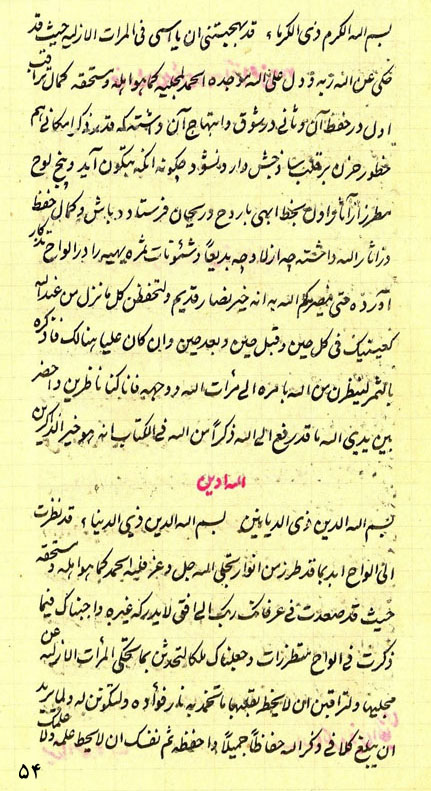 بسم الله الکرم ذی الکرماء قد بهجتنی ان یا اسمی فی المرات الازلیه حیث قد
حکی عن الله ربه و دل علی الله موجده الحمد لمجلیه کما هو اهله و مستحقه کمال مراقبت
اول در حفظ آن و ثانی در شوق و ابتهاج آن داشته که قدر ذکر امکانی هم
خطور حزن بر قلب وارد نشود چگونه آنکه بتکون آید و پنج لوح
مطرز از آثار اول بخط ابهی با روح و ریحان فرستاده باش و کمال حفظ
در آثار الله داشته چه از لا و چه بدیعا و شئونات بهیه را در الواح
آورده حتی الله به انه خیر نصار قدیم ولتحفظن کل ما نزل من عند الله
کعینیک فی کل حین و قبل حین و بعد حین و ان کان علیا هنالک فاذکره
بالثمر لینظرن من الله بامره الی مرآت الله و وجهه فانا کنا ناظرین و احضر
بین یدی الله ما قد رفع الی الله ذکرا من الله فی الکتاب انه هو خیر الذاکرین
الله ادین
بسم الله الدین ذی الدیانین بسم الله الدین ذی الدیناء قد نظرت
الی الواح ابدیه ما قد طرز من انوار تجلی الله جل و عز فلله الحمد کما هو اهله و مستحقه
حیث قد صعدت فی عرفان ربک الی افق لا یدرکه غیره و اجبناک فیما
ذکرت فی الواح متطرزات و جعلناک ملکا لتحدثن بما تحکی المرآت الازلیه عن
مجلیها و لتراقبن ان لا یخطر بقلبها ما تخمد به نار فؤاده و لتکونن له و لما یرید
ان یبلغ کلا فی ذکر الله حفاظا جمیلا و احفظه ثم نفسک ان لا یحیط علمه و لا علمک
۵۴